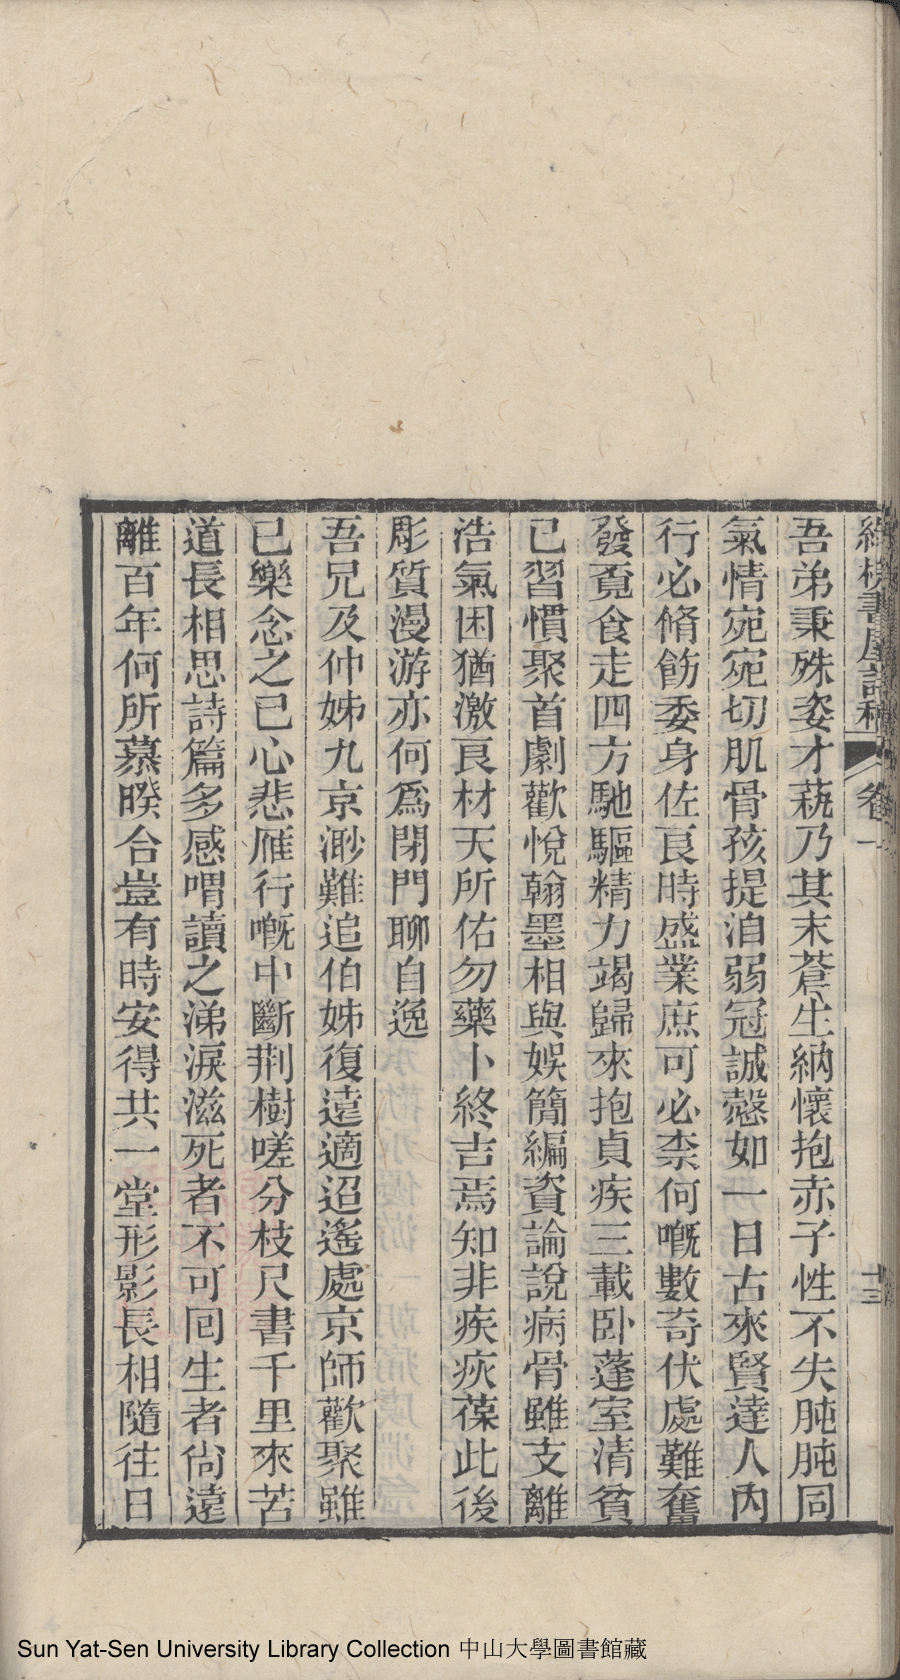 綠槐書屋詩稿 卷一 十三
吾弟秉殊姿才蓺乃其末蒼生納懷抱赤子性不失肫肫同
氣情宛宛切肌骨孩提洎弱冠誠慤如一日古來賢達人內
行必脩飭委身佐良時盛業庶可必柰何嘅數奇伏處難奮
發覔食走四方馳驅精力竭歸來抱貞疾三載臥蓬室清貧
已習慣聚首劇歡悅翰墨相與娛簡編資論說病骨雖支離
浩氣困猶激良材天所佑勿藥卜終吉焉知非疾疢葆此後
彫質漫游亦何爲閉門聊自逸
吾兄及仲姊九京渺難追伯姊復遠適迢遙處京師歡聚雖
已樂念之已心悲雁行嘅中斷荆樹嗟分枝尺書千里來苦
道長相思詩篇多感喟讀之涕淚滋死者不可回生者尙遠
離百年何所慕暌合豈有時安得共一堂形影長相隨往日
Sun Yat-Sen University Library Collection 中山大學圖書館藏